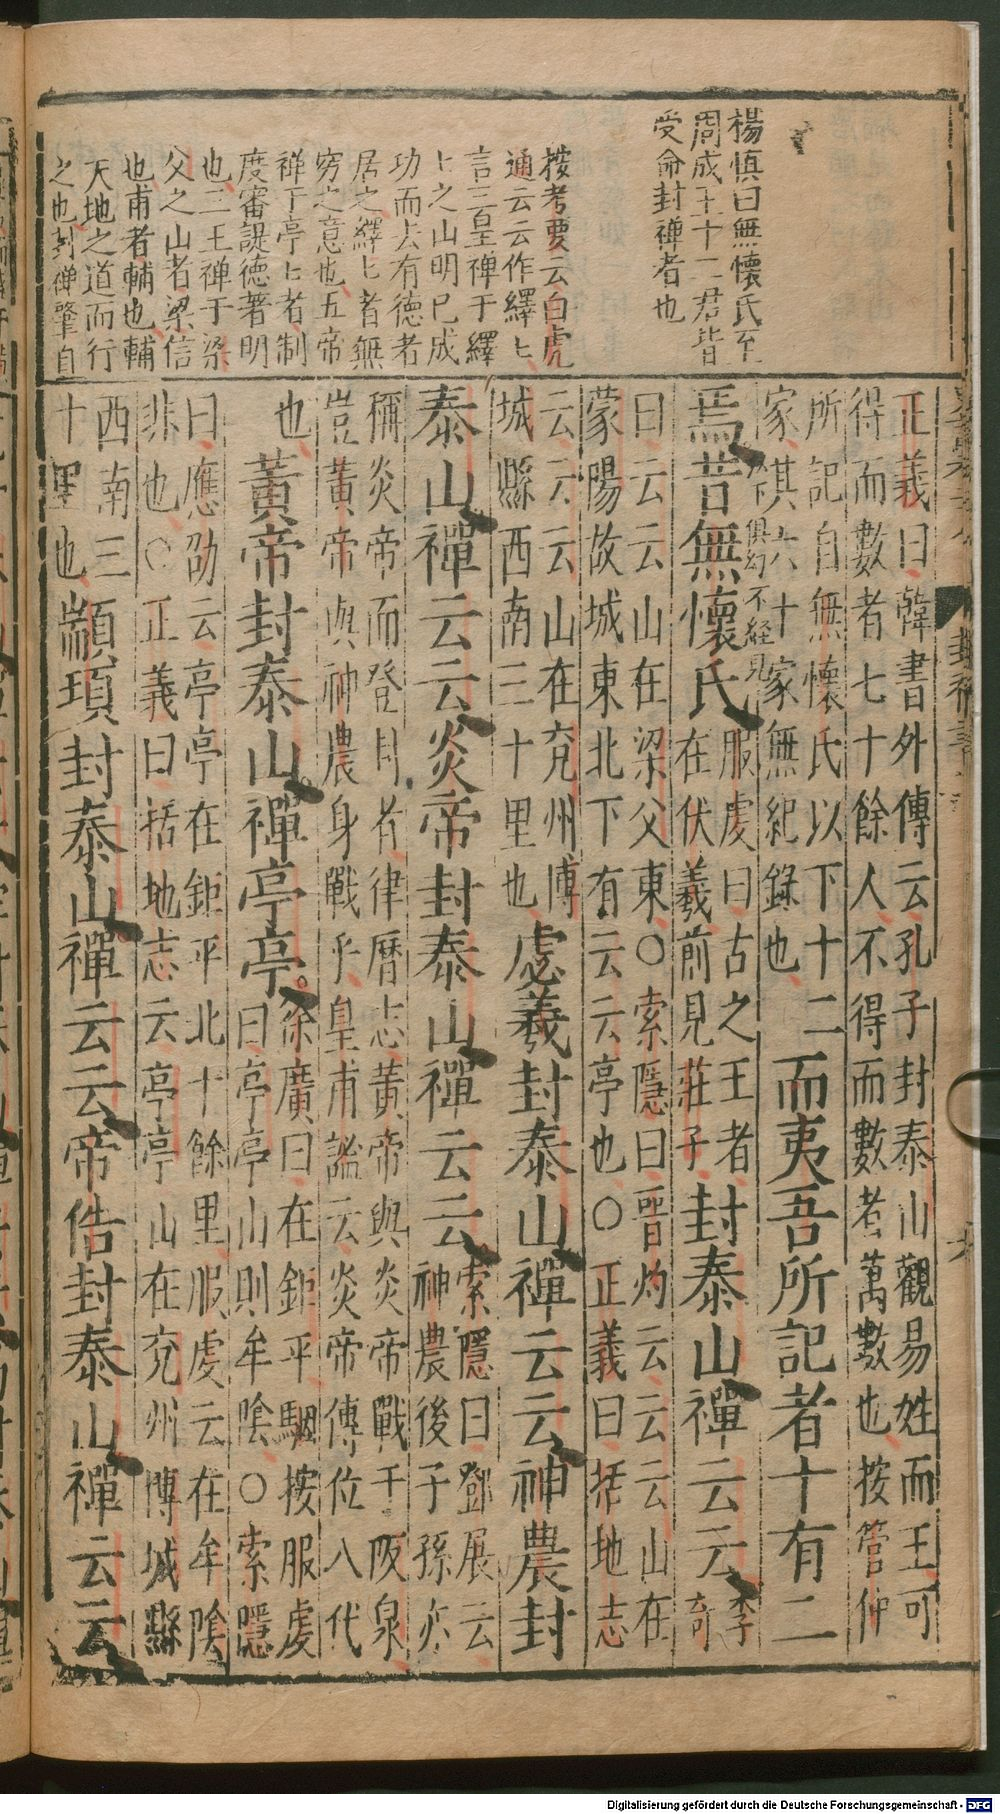 楊慎曰無懷氏至
周成王十二君皆
受命封禪者也
按考要云白虎
通云云作繹〻
言三皇禪于繹
〻之山明已成
功而去有德者
居之繹〻者無
窮之意也五帝
禪于亭〻者制
度審諟德著明
也三王禪于梁
父之山者梁信
也甫者輔也輔
天地之道而行
之也封禪肇自
正義曰韓書外傳云孔子封泰山觀易姓而王可
得而數者七十餘人不得而數者萬數也按管仲
所記自無懷氏以下十二
家其六十家無紀錄也
而夷吾所記者十有二
以下俱幻不經見
焉昔無懷氏
服虔曰古之王者
在伏羲前見莊子
封泰山禪云云
李奇
曰云云山在梁父東○索隱曰晋灼云云云山在
蒙陽故城東北下有云云亭也○正義曰括地志
云云云山在兖州博
城縣西南三十里也
虙羲封泰山禪云云神農封
泰山禪云云炎帝封泰山禪云云
索隱曰鄧展云
神農後子孫亦
稱炎帝而登封者律曆志黃帝與炎帝戰于阪泉
豈黃帝與神農身戰乎皇甫謐云炎帝傳位八代
也
黃帝封泰山禪亭亭
徐廣曰在鉅平駰按服虔
曰亭亭山則牟陰○索隱
曰應劭云亭亭在鉅平北十餘里服虔云在牟陰
非也○正義曰括地志云亭亭山在兖州博城縣
西南三
十里也
顓頊封泰山禪云云帝俈封泰山禪云云
封禪書
Digitalisierung gefördert durch die Deutsche Forschungsgemeinschaft - DFG